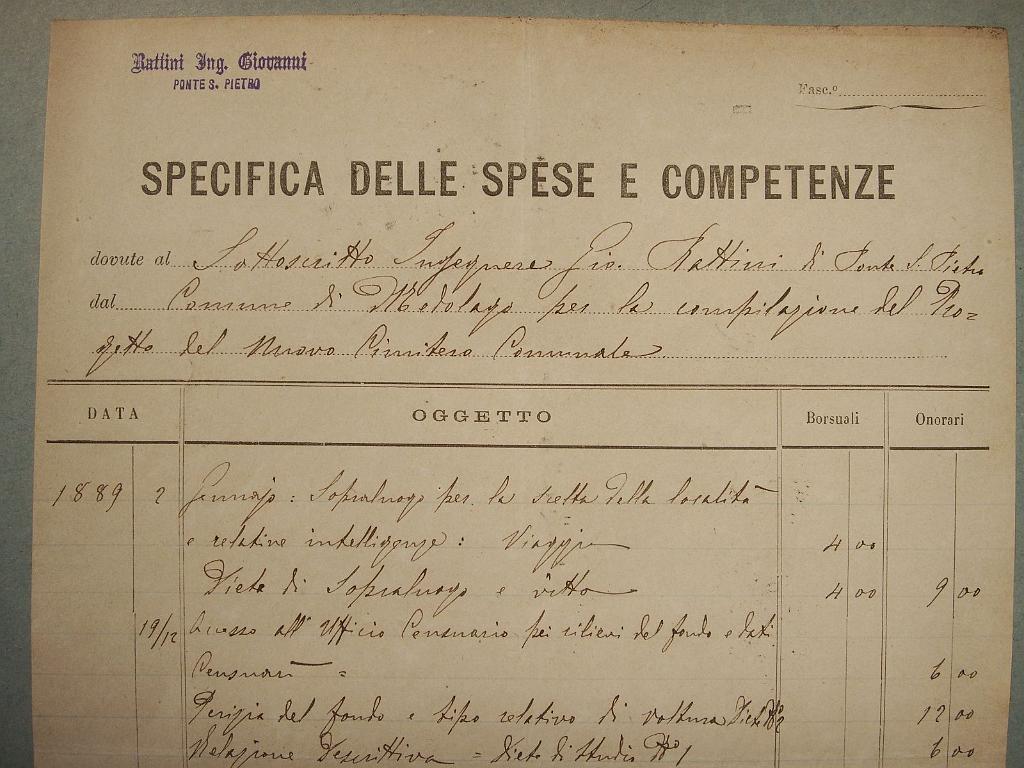 Rattini Ing. Giovanni
PONTE S. PIETRO
Fasc.º
SPECIFICA DELLE SPESE E COMPETENZE
dovute al Sottoscritto Ingegnere Gio. Rattini di Ponte S. Pietro
dal Comune di Medolago per la compilazione del Pro=
getto del Nuovo Cimitero Comunale
DATA OGGETTO Borsuali Onorari
1889 2 Gennajo: Sopraluogo per la scelta della località
e relative intelligenze: Viaggio 4 00
Dieta di Sopraluogo e vitto 4 00 9 00
19/12 Accesso all' Ufficio Censuario pei rilievi del fondo e dati
Censuari = 6 00
Perizia del fondo e tipo relativo di voltura Diete Nº 2 12 00
Relazione Descrittiva = Dieta di studio Nº 1 6 00